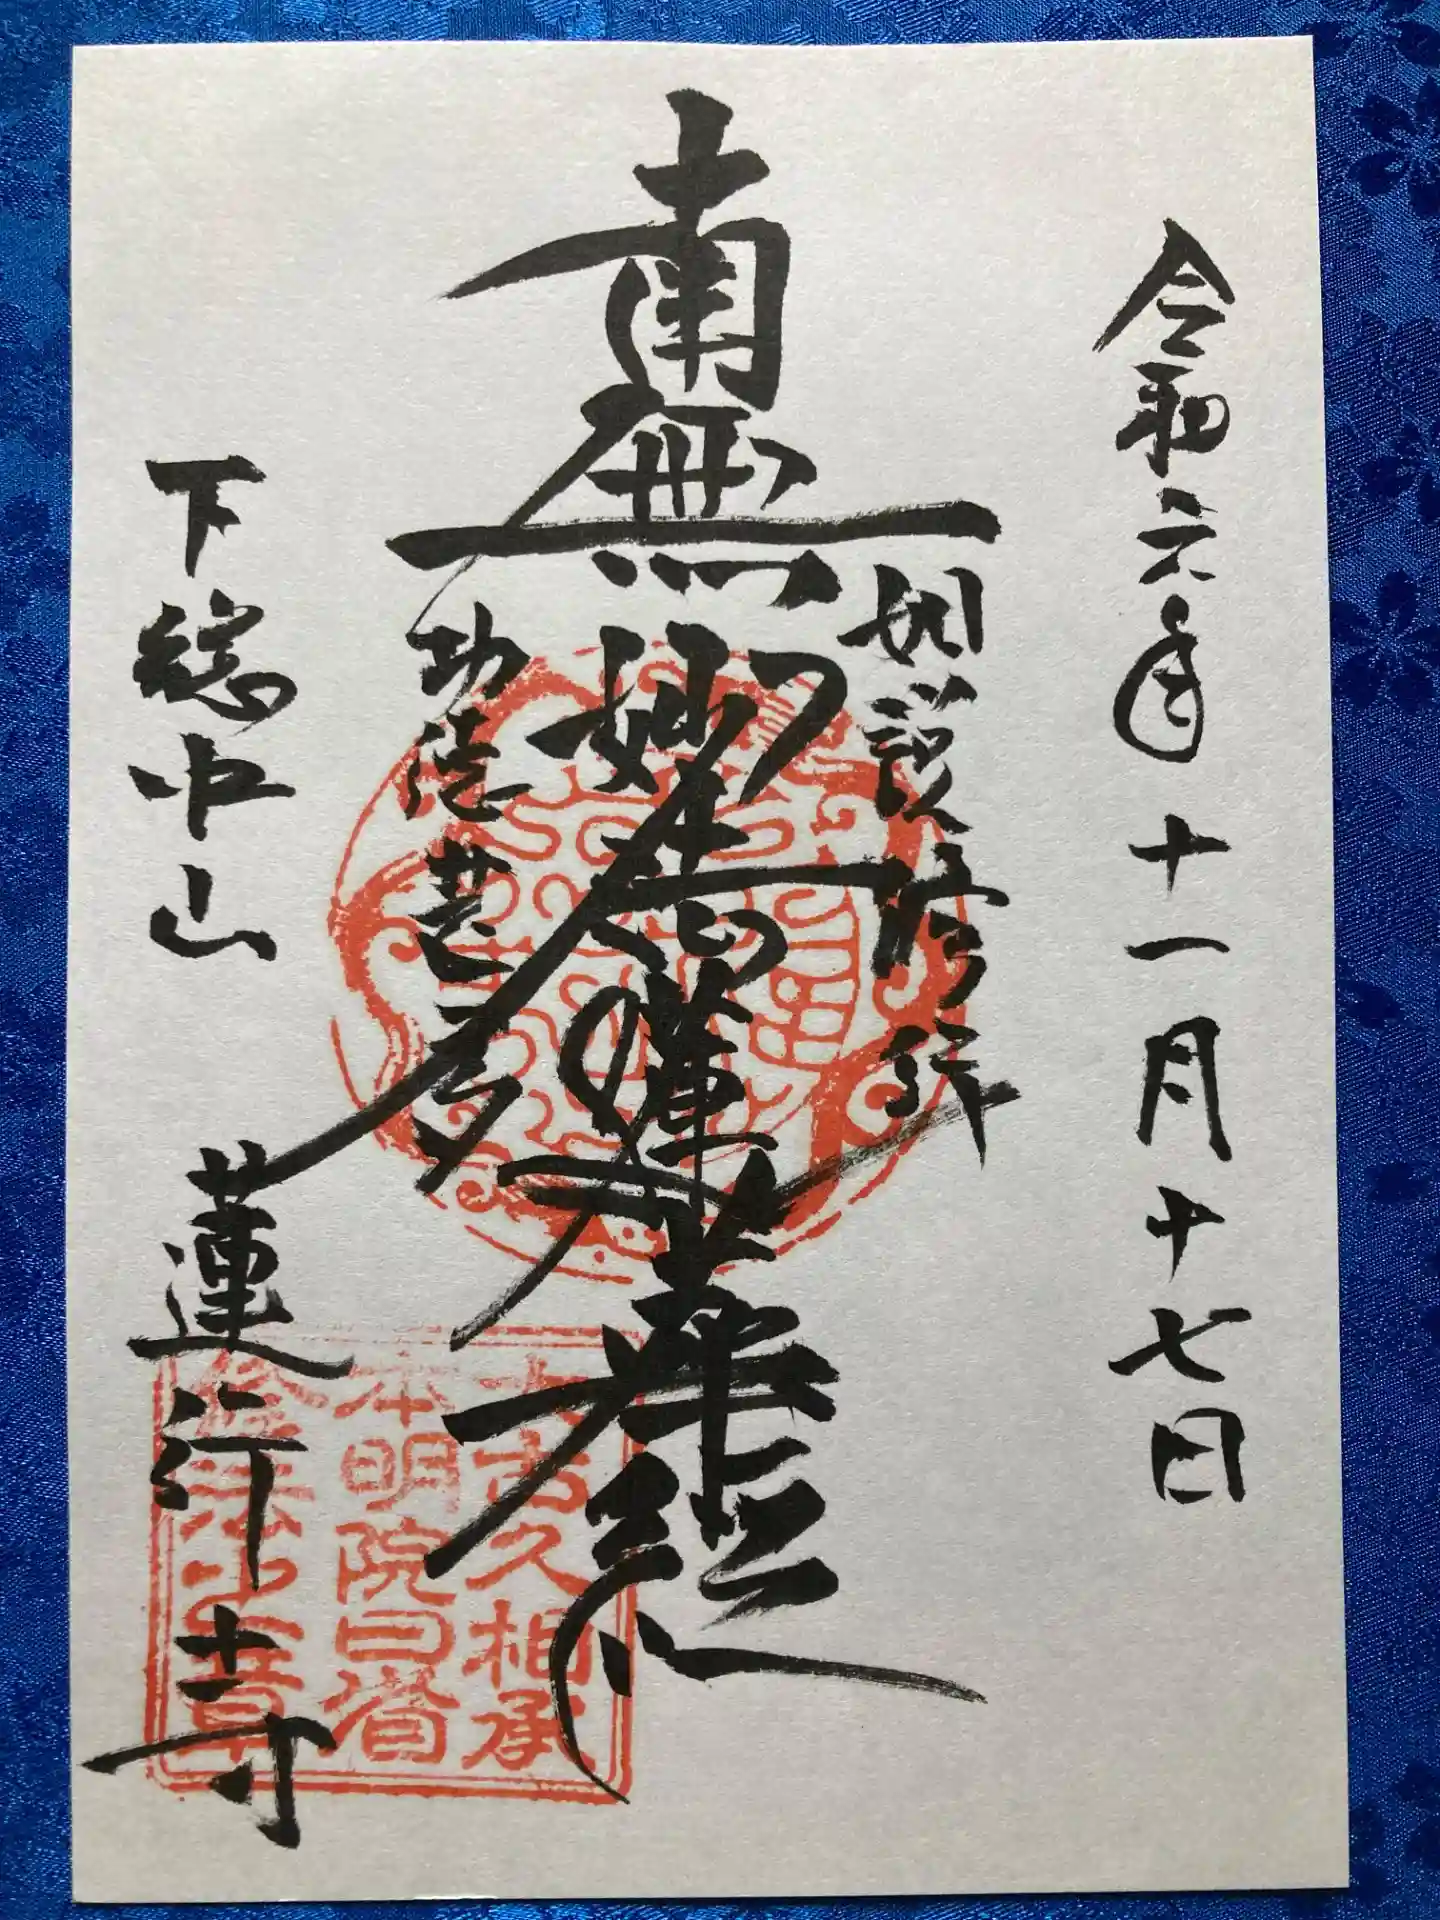 令和六年十一月十七日
如説修行
南無妙法蓮華経
功徳甚多
下総中山 蓮行寺
久相承
本明院日省